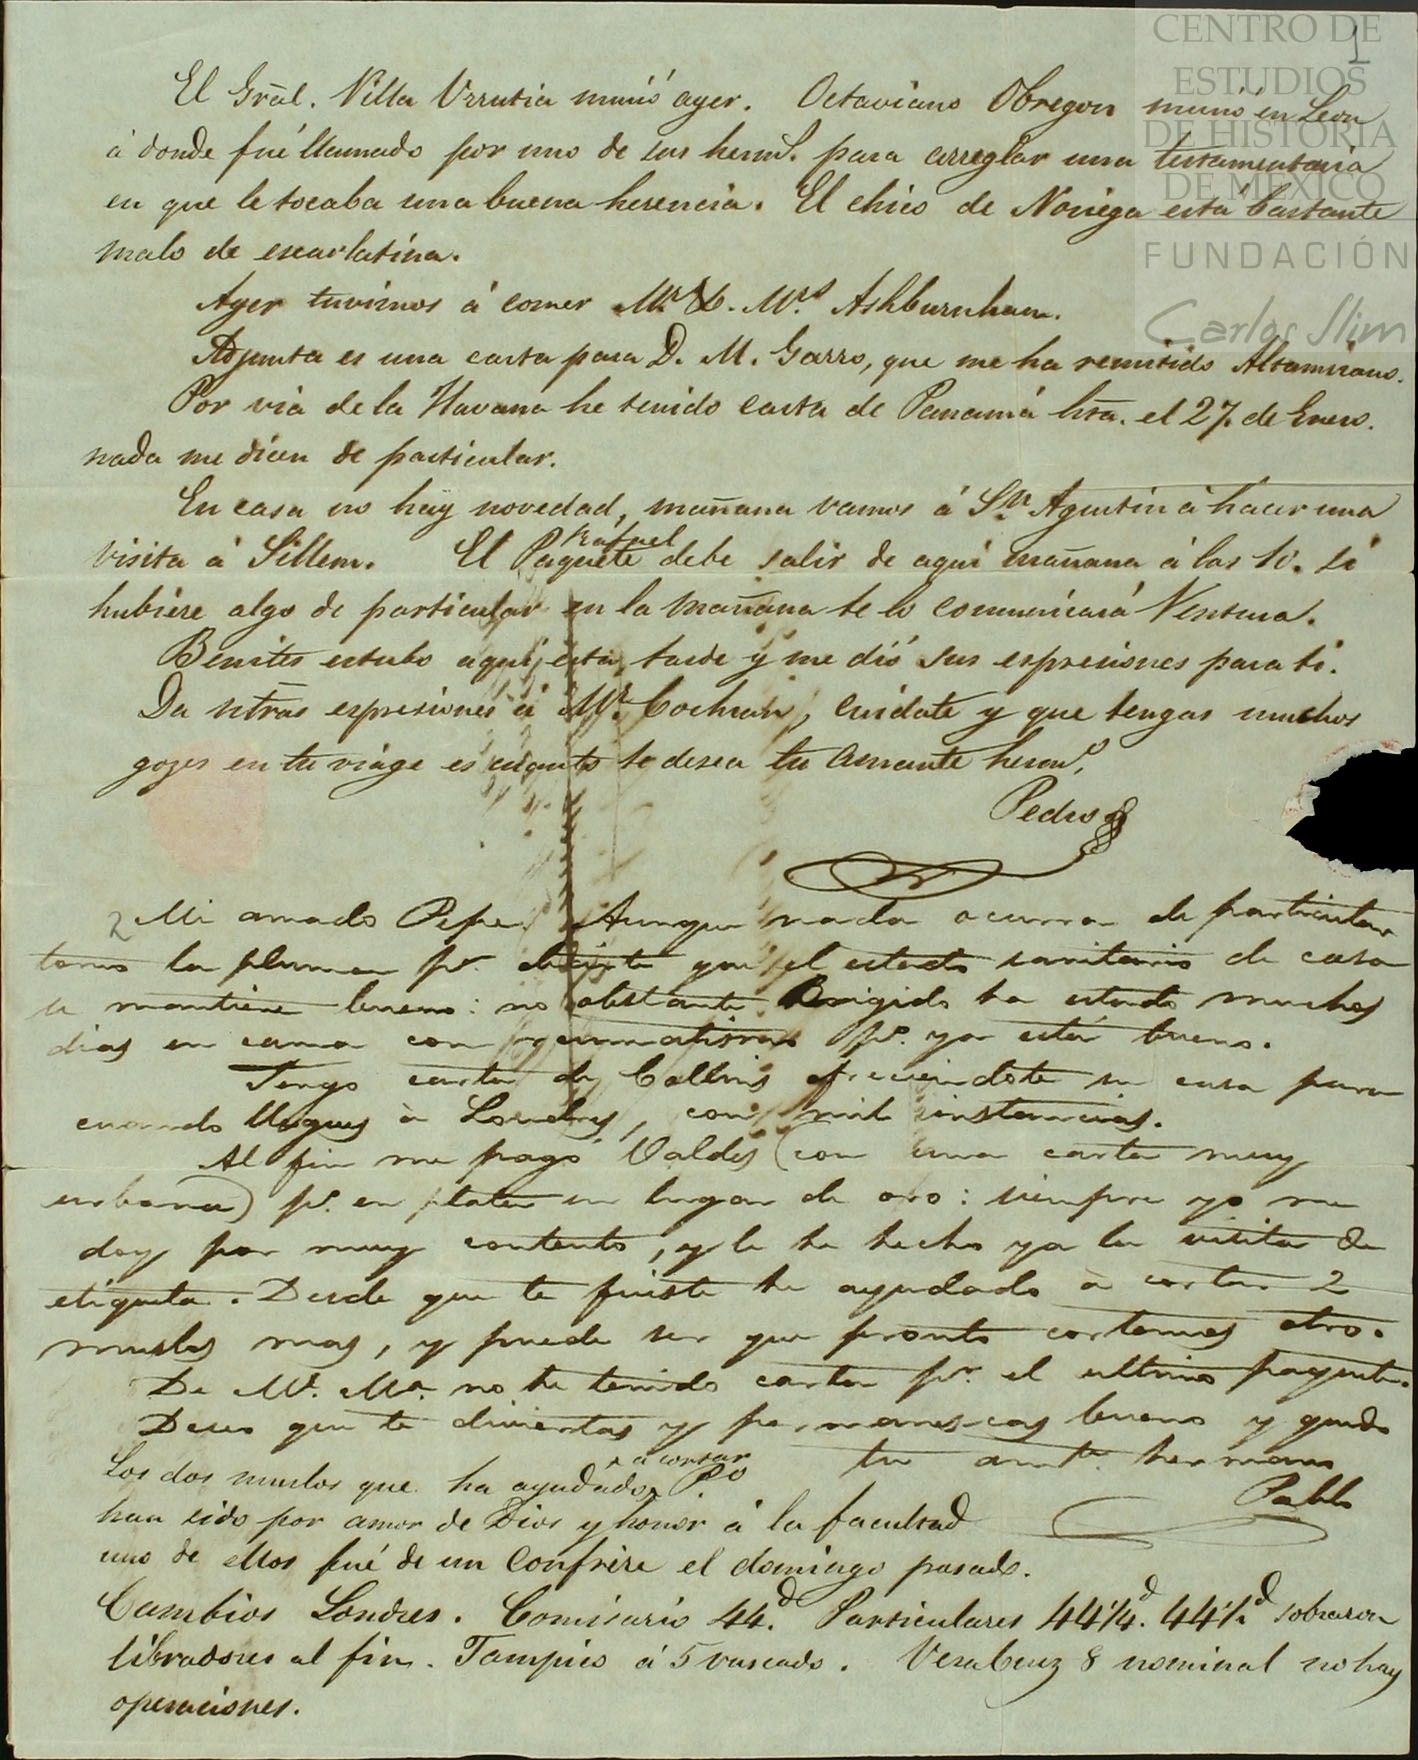 CENTRO DE
ESTUDIOS
DE HISTORIA
DE MÉXICO
FUNDACIÓN
Carlos Slim
1
El Gral. Villa Urrutia murió ayer. Octaviano Obregon murió en Leon
á donde fué llamado por uno de sus herms. para arreglar una testamentaria
en que le tocaba una buena herencia. El chico de Noriega está bastante
malo de escarlatina.
Ayer tuvimos á comer Mr. & Mrs. Ashburnham.
Adjunta es una carta para D. M. Garro, que me ha remitido Altamirano.
Por via de la Havana he tenido carta de Panamá hta. el 27. de Enero.
nada me dicen de particular.
En casa no hay novedad, mañana vamos á Sn. Agustin á hacer una
visita á Sillem. El Paquete debe salir de aqui mañana á las 10. si
hubiere algo de particular en la mañana te lo comunicará Ventura.
Benites estubo aqui esta tarde y me dió sus espresiones para ti.
Da ntras espresiones á Mr. Cochran, cuidate y que tengas muchos
gozes en tu viage es cuanto te desea tu amante hermo.
Pedro
2 Mi amado Pepe. Aunque nada ocurra de particular
tomo la pluma pa. decirte que el estado sanitario de casa
se mantiene bueno: no obstante Brigido ha estado muchos
dias en cama con reumatismo po. ya está bueno.
Tengo carta de Collins ofreciendote su casa para
cuando llegues à Londres, con mil instancias.
Al fin me pagó Valdes (con una carta muy
urbana) po. en plata en lugar de oro: siempre yo me
doy por muy contento, y le he hecho ya la visita de
etiqueta. Desde que te fuiste he ayudado à cortar 2
muslos mas, y puede ser que pronto cortemos otro.
De Ma. no he tenido carta pr. el ultimo paquete.
Deseo que te diviertas y permanescas bueno y quedo
tu amte. hermano
Pablo
Los dos muslos que ha ayudado a cortar Po.
han sido por amor de Dios y honor á la facultad
uno de ellos fué de un Confrère el domingo pasado.
Cambios Londres. Comisario 44d. Particulares 44¼d. 44½d sobraron
libradores al fin. Tampico á 5 buscado. VeraCruz 8 nominal no hay
operaciones.